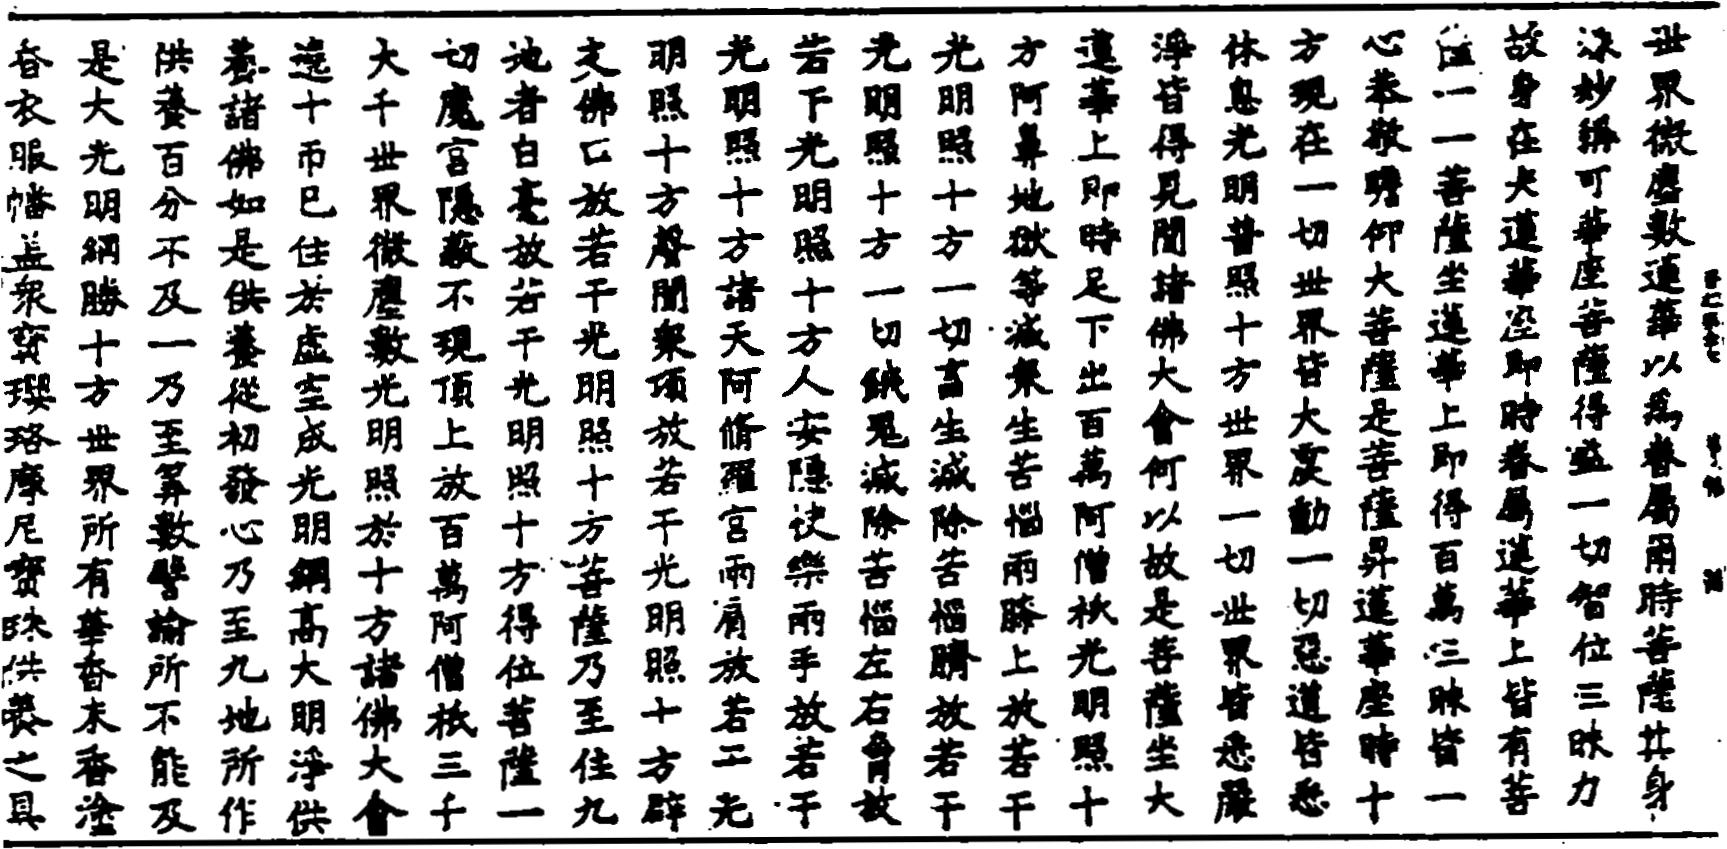 世界微塵數蓮華以為眷屬爾時菩薩其身
殊妙稱可華座菩薩得益一切智位三昧力
故身在大蓮華座即時眷屬蓮華上皆有菩
薩一一菩薩坐蓮華上即得百萬三昧皆一
心恭敬瞻仰大菩薩是菩薩昇蓮華座時十
方現在一切世界皆大震動一切惡道皆悉
休息光明普照十方世界一切世界皆悉嚴
淨皆得見聞諸佛大會何以故是菩薩坐大
蓮華上即時足下出百萬阿僧祇光明照十
方阿鼻地獄等滅衆生苦惱兩膝上放若干
光明照十方一切畜生滅除苦惱臍放若干
光明照十方一切餓鬼滅除苦惱左右脅放
若干光明照十方人安隱快樂兩手放若干
光明照十方諸天阿脩羅宮兩肩放若干光
明照十方聲聞衆項放若干光明照十方辟
支佛口放若干光明照十方菩薩乃至住九
地者白毫放若干光明照十方得位菩薩一
切魔宮隱蔽不現頂上放百萬阿僧祇三千
大千世界微塵數光明照於十方諸佛大會
遶十帀已住於虛空成光明網高大明淨供
養諸佛如是供養從初發心乃至九地所作
供養百分不及一乃至筭數譬諭所不能及
是大光明網勝十方世界所有華香末香塗
香衣服幡盖衆寳瓔珞摩尼寳珠供養之具